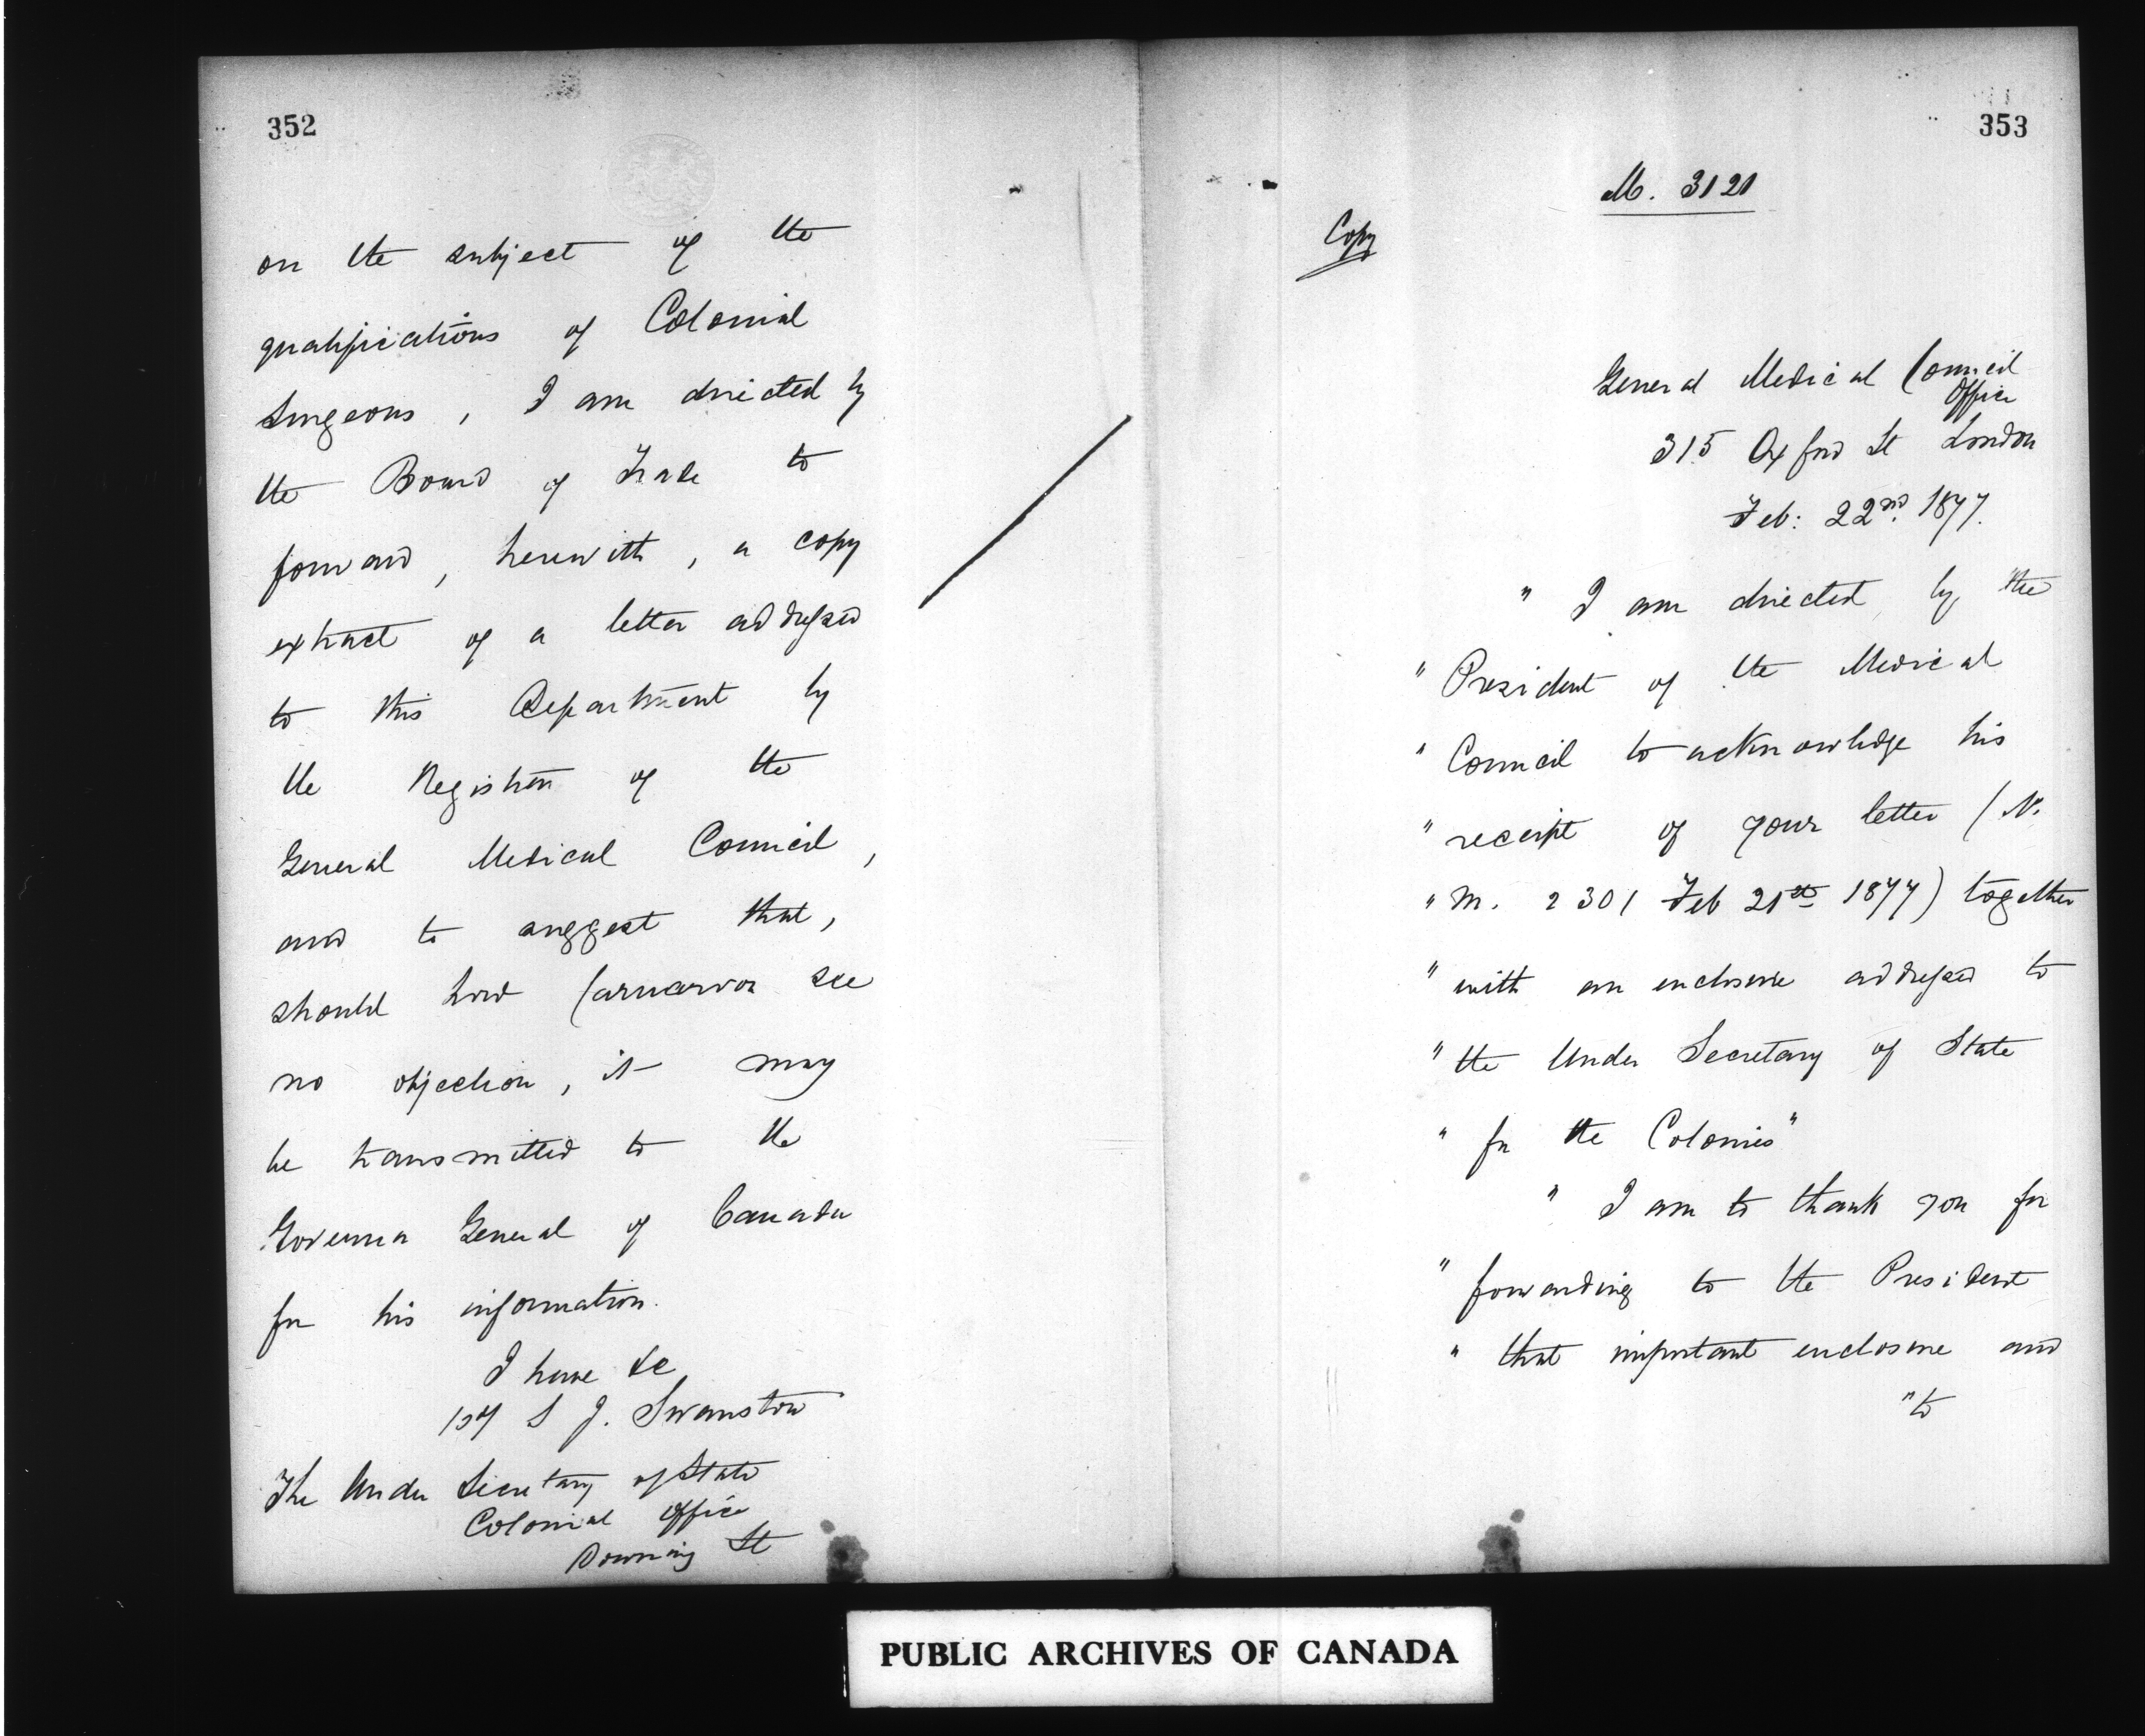 352
on the subject of the
qualifications of Colonial
Surgeons, I am directed by
the Board of Trade to
forward, herewith, a copy
extract of a letter addressed
to this Department by
the Registrar of the
General Medical Council,
and to suggest that,
should Lord Carnarvon see
no objection, it may
be transmitted to the
Governor General of Canada
for his information.
I have &c
S J. Swanston
The Under Secretary of State
Colonial Office
Downing St
353
M. 3121
Copy
General Medical Council
Office
315 Oxford St London
Feb: 22nd. 1877.
" I am directed by the
" President of the Medical
" Council to acknowledge his
" receipt of your letter (No.
" M. 2301 Feb 21st 1877) together
" with an enclosure addressed to
" the Under Secretary of State
" for the Colonies"
" I am to thank you for
" forwarding to the President
" that important enclosure and
" to
PUBLIC ARCHIVES OF CANADA